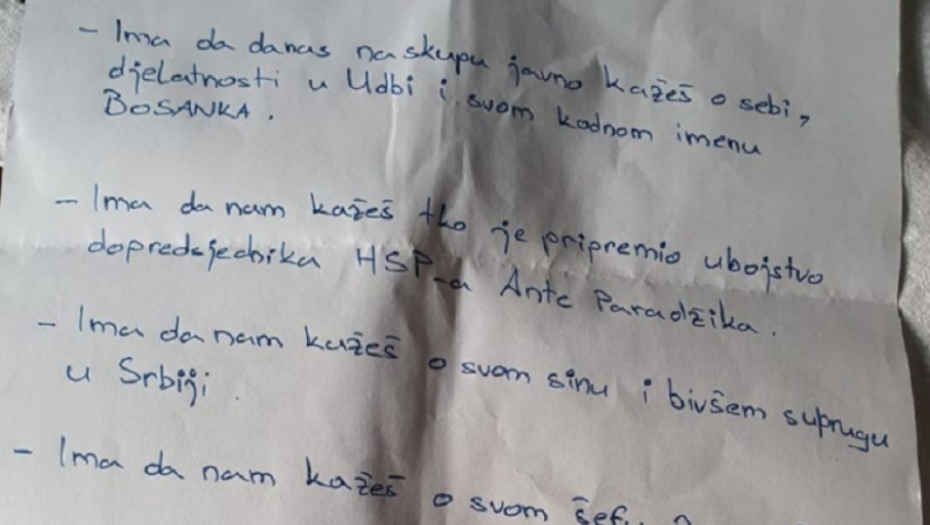 - Ima da danas na skupu javno kažeš o sebi,
djelatnosti u Udbi i svom kodnom imenu
BOSANKA.
- Ima da nam kažeš tko je pripremio ubojstvo
dopredsjednika HSP-a Ante Paradžika.
- Ima da nam kažeš o svom sinu i bivšem suprugu
u Srbiji.
- Ima da nam kažeš o svom šefu